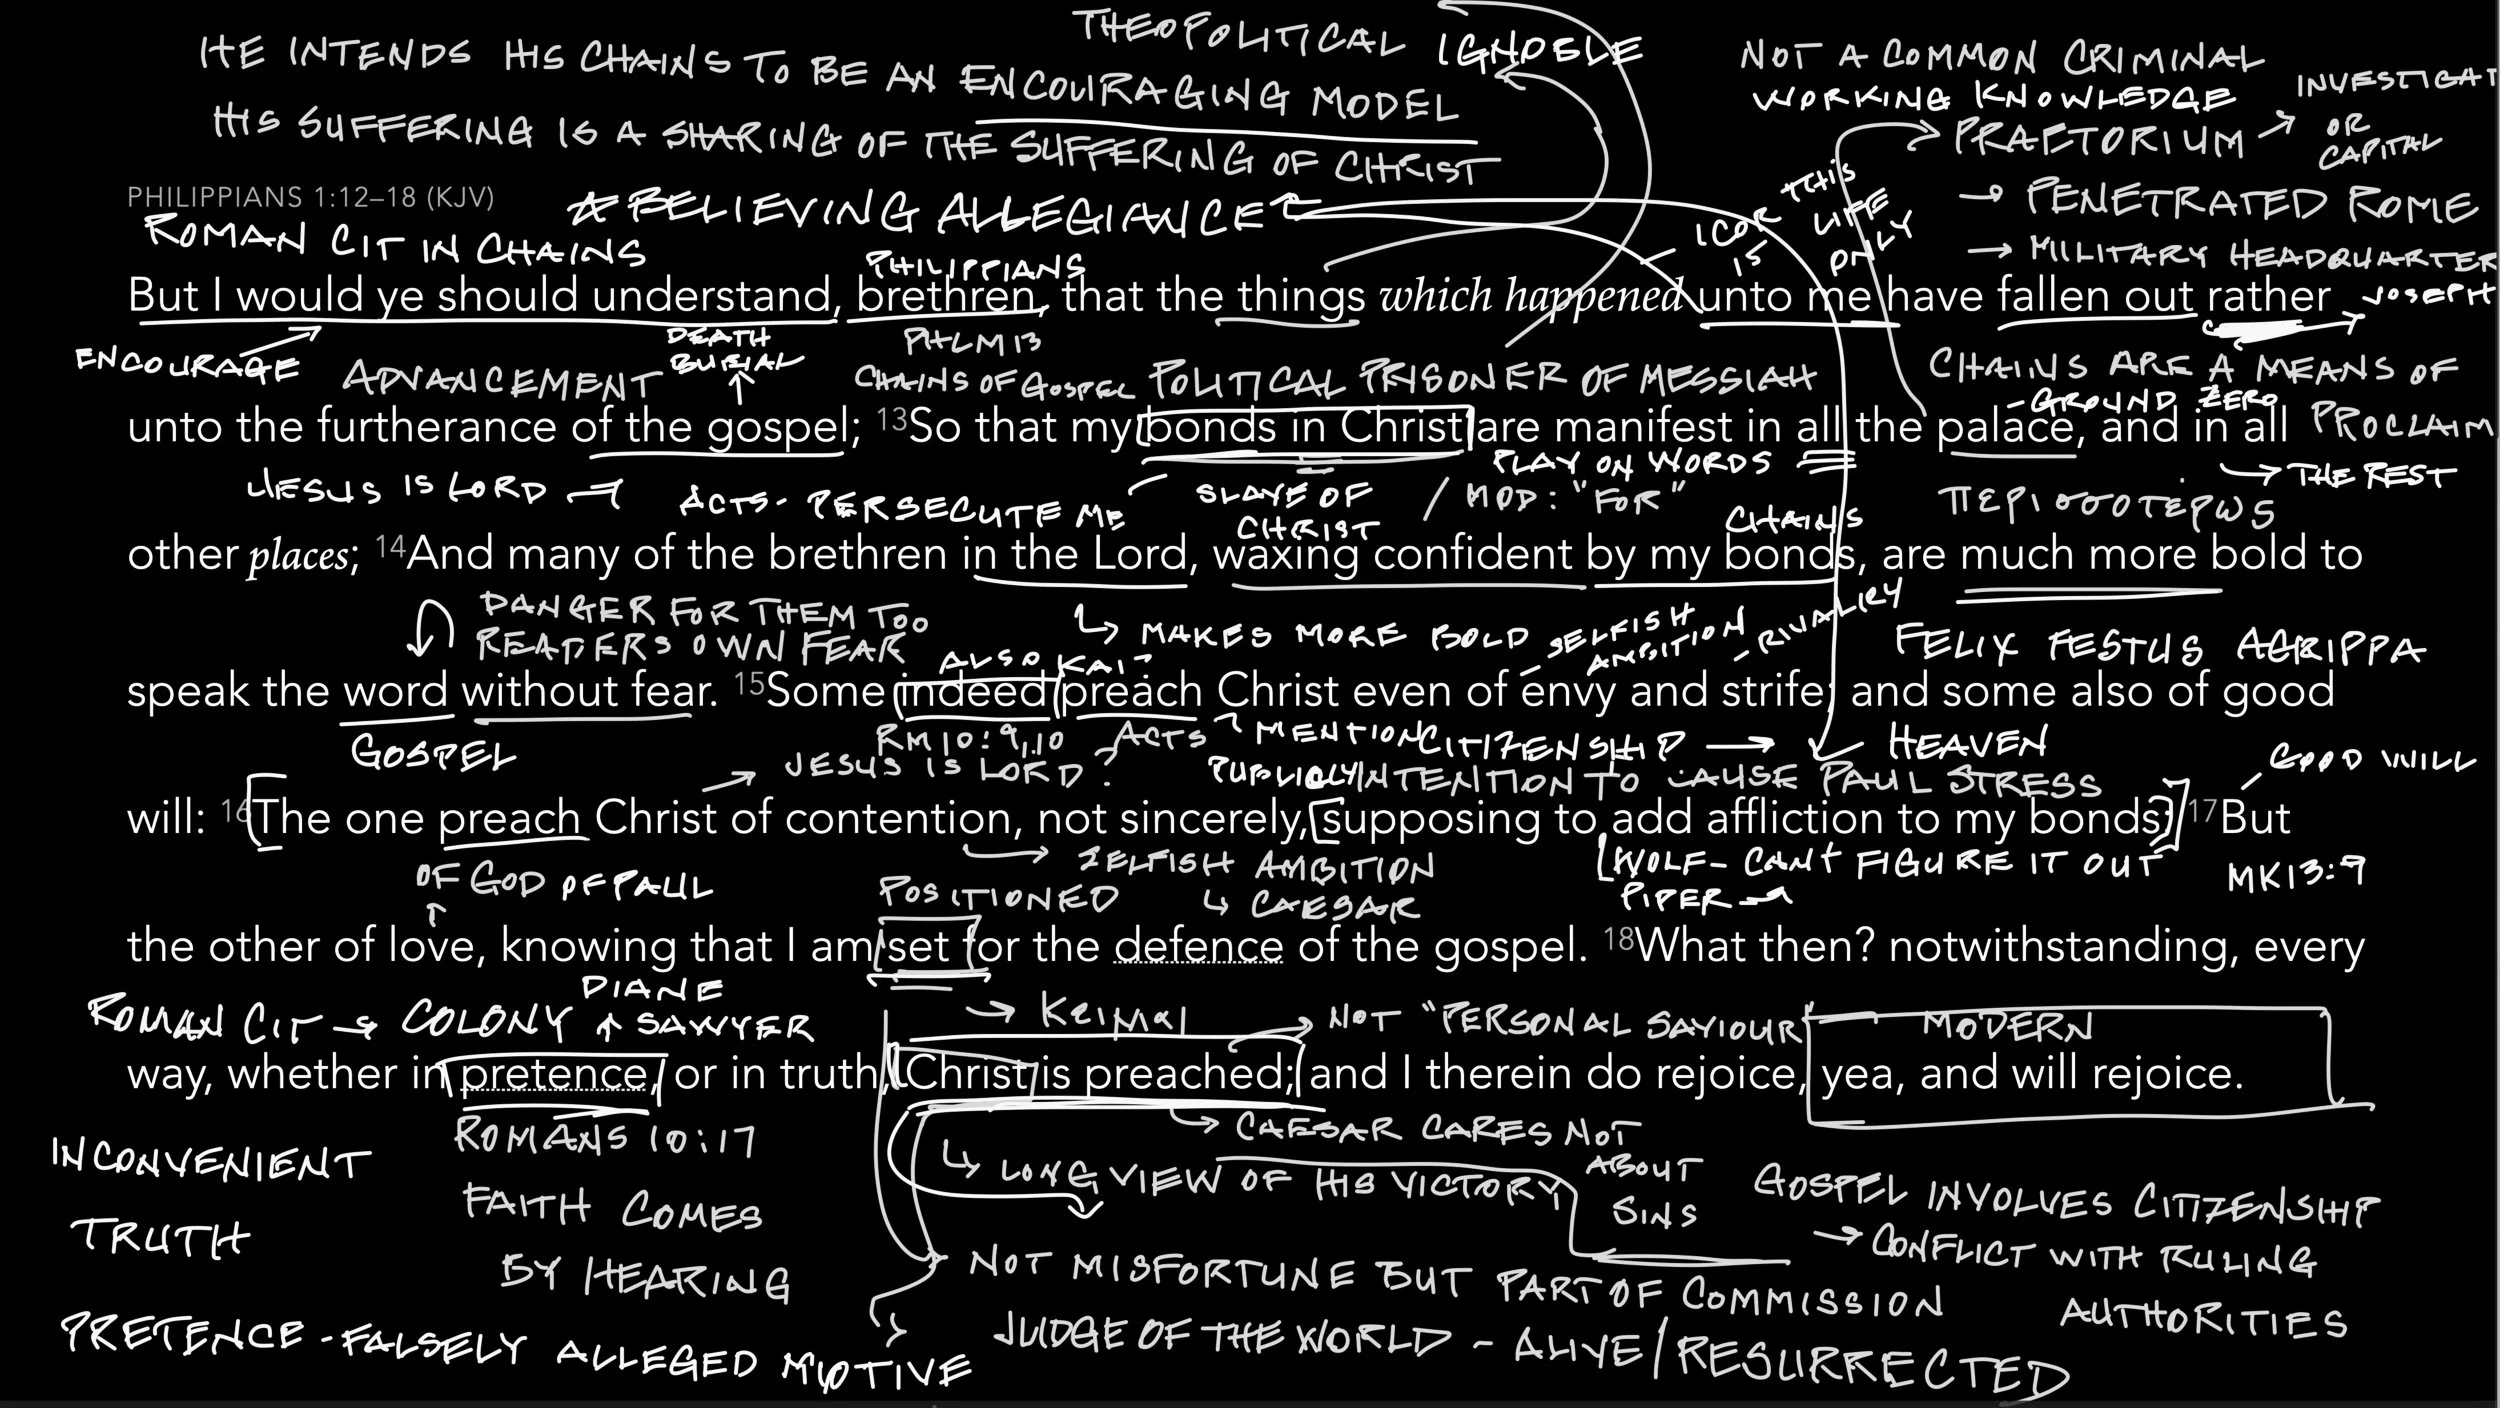 THEOPOLITICAL IGNOBLE
HE INTENDS HIS CHAINS TO BE AN ENCOURAGING MODEL
NOT A COMMON CRIMINAL
WORKING KNOWLEDGE
INVESTIGAT
HIS SUFFERING IS A SHARING OF THE SUFFERING OF CHRIST
PRAETORIUM → OR CAPITAL
PHILIPPIANS 1:12–18 (KJV)
BELIEVING ALLEGIANCE
THIS LIFE ONLY
→ PENETRATED ROME
ROMAN CIT IN CHAINS
1COR IS
→ MILITARY HEADQUARTER
PHILIPPIANS
But I would ye should understand, brethren, that the things which happened unto me have fallen out rather
JOSEPH
ENCOURAGE
DEATH
BURIAL
PHLM 13
ADVANCEMENT
CHAINS OF GOSPEL POLITICAL PRISONER OF MESSIAH
CHAINS ARE A MEANS OF
- GROUND ZERO
PROCLAIM
unto the furtherance of the gospel; 13So that my bonds in Christ are manifest in all the palace, and in all
JESUS IS LORD
ACTS - PERSECUTE ME
SLAVE OF CHRIST
PLAY ON WORDS
/ MOD: "FOR"
CHAINS
→ THE REST
ΠΕΡΙσσοτερως
other places; 14And many of the brethren in the Lord, waxing confident by my bonds, are much more bold to
DANGER FOR THEM TOO
READERS OWN FEAR
ALSO KAI
MAKES MORE BOLD SELFISH AMBITION, RIVALRY
FELIX FESTUS AGRIPPA
speak the word without fear. 15Some indeed preach Christ even of envy and strife; and some also of good
GOSPEL
RM 10:9,10
ACTS
MENTION CITIZENSHIP → HEAVEN
→ JESUS IS LORD?
PUBLICLY INTENTION TO CAUSE PAUL STRESS
GOOD WILL
will: 16The one preach Christ of contention, not sincerely, supposing to add affliction to my bonds: 17But
OF GOD OF PAUL
POSITIONED
→ SELFISH AMBITION
↳ CAESAR
WOLF - CAN'T FIGURE IT OUT
PIPER →
MK 13:9
the other of love, knowing that I am set for the defence of the gospel. 18What then? notwithstanding, every
ROMAN CIT → COLONY
DIANE SAWYER
→ NOT "PERSONAL SAVIOUR
MODERN
way, whether in pretence, or in truth, Christ is preached; and I therein do rejoice, yea, and will rejoice.
INCONVENIENT
TRUTH
ROMANS 10:17
FAITH COMES
BY HEARING
→ CAESAR CARES NOT ABOUT SINS
↳ LONG VIEW OF HIS VICTORY
GOSPEL INVOLVES CITIZENSHIP
→ CONFLICT WITH RULING
AUTHORITIES
NOT MISFORTUNE BUT PART OF COMMISSION
PRETENCE - FALSELY ALLEGED MOTIVE
JUDGE OF THE WORLD - ALIVE / RESURRECTED